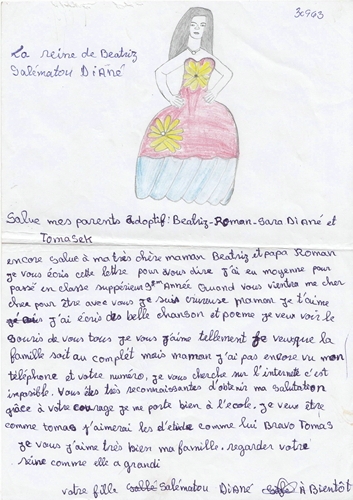 30903
La reine de Beatriz
Salématou DiAné
Salue mes parents adoptif: Beatriz-Roman-Sara DiAné et
Tomasek
encore salue à ma très chère maman Beatriz et papa Roman
je vous écris cette lettre pour vous dire j'ai eu moyenne pour
passé en classe supérieur 9ème Année Quand vous viendra me cher
cher pour être avec vous je suis vureuse maman je t'aime
j'ai écris des belle chanson et poeme je veux voir le
souris de vous tous je vous j'aime tellement je veux que la
famille soit au complét mais maman j'ai pas encore vu mon
téléphone et votre numéro, je vous cherche sur l'internete c'est
imposible. Vous êtes très reconnaissantes d'obtenir ma salutation
grâce à votre courage je me porte bien à l'ecole. je veux être
comme tomas j'aimerai les d'etide comme lui Bravo Tomas
je vous j'aime très bien ma famille. regarder votre
reine comme elle a grandi
votre fille Salématou DiAné À Bientôt